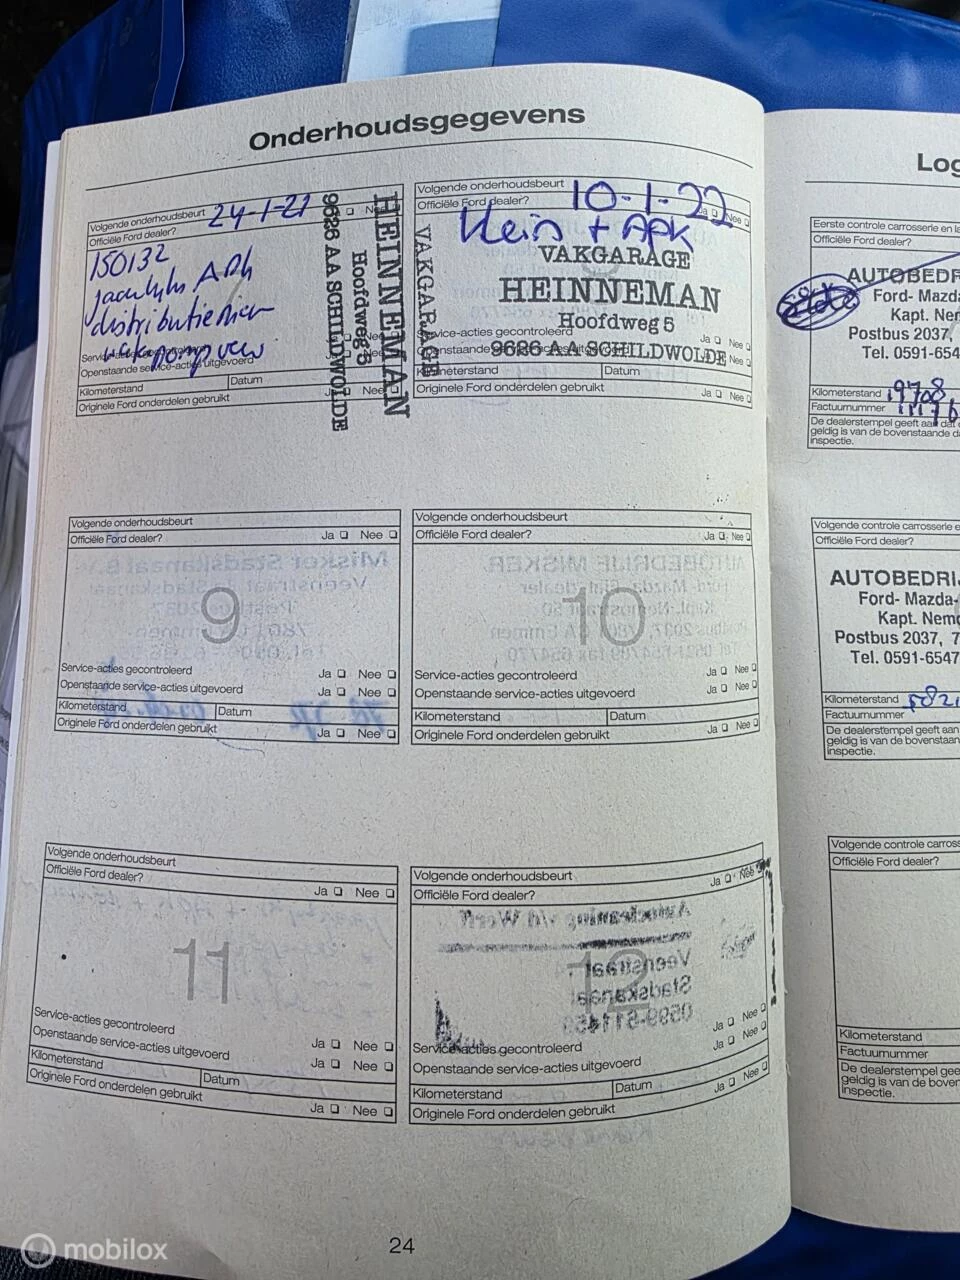 Onderhoudsgegevens
Volgende onderhoudsbeurt 24-1-21
Officiële Ford dealer?
150132
APk
distributieriem
Openstaande service-acties uitgevoerd
Kilometerstand Datum
Originele Ford onderdelen gebruikt
VAKGARAGE
HEINNEMAN
Hoofdweg 5
9626 AA SCHILDWOLDE
Volgende onderhoudsbeurt 10-1-22
Officiële Ford dealer? Ja Nee
klein + APK
VAKGARAGE
HEINNEMAN
Hoofdweg 5
9626 AA SCHILDWOLDE
Service-acties gecontroleerd Ja Nee
Openstaande service-acties uitgevoerd Nee
Kilometerstand Datum
Originele Ford onderdelen gebruikt Ja Nee
Volgende onderhoudsbeurt
Officiële Ford dealer? Ja Nee
9
Service-acties gecontroleerd Ja Nee
Openstaande service-acties uitgevoerd Ja Nee
Kilometerstand Datum
Originele Ford onderdelen gebruikt Ja Nee
Volgende onderhoudsbeurt
Officiële Ford dealer? Ja Nee
10
Service-acties gecontroleerd Ja Nee
Openstaande service-acties uitgevoerd Ja Nee
Kilometerstand Datum
Originele Ford onderdelen gebruikt Ja Nee
Volgende onderhoudsbeurt
Officiële Ford dealer? Ja Nee
11
Service-acties gecontroleerd Ja Nee
Openstaande service-acties uitgevoerd Ja Nee
Kilometerstand Datum
Originele Ford onderdelen gebruikt Ja Nee
Volgende onderhoudsbeurt
Officiële Ford dealer? Ja Nee
12
Service-acties gecontroleerd Ja Nee
Openstaande service-acties uitgevoerd Ja Nee
Kilometerstand Datum
Originele Ford onderdelen gebruikt Ja Nee
24
Log
Eerste controle carrosserie en la
Officiële Ford dealer?
AUTOBEDRI
Ford- Mazda
Kapt. Nem
Postbus 2037,
Tel. 0591-654
Kilometerstand 19708
Factuurnummer
De dealerstempel geeft aan dat
geldig is van de bovenstaande
inspectie.
Volgende controle carrosserie e
Officiële Ford dealer?
AUTOBEDRIJ
Ford- Mazda-
Kapt. Nemo
Postbus 2037, 7
Tel. 0591-6547
Kilometerstand
Factuurnummer
De dealerstempel geeft aan
geldig is van de bovenstaan
inspectie.
Volgende controle carross
Officiële Ford dealer?
Kilometerstand
Factuurnummer
De dealerstempel gee
geldig is van de bover
inspectie.
mobilox